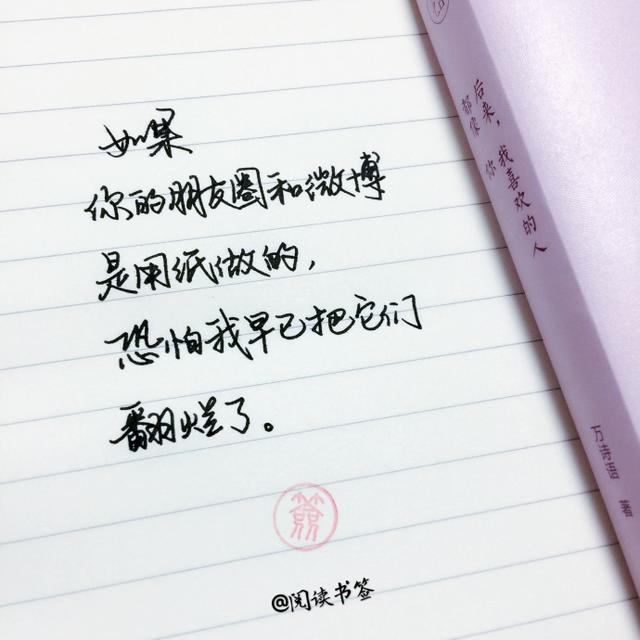 如果
你的朋友圈和微博
是用纸做的，
恐怕我早已把它们
翻烂了。
签
@阅读书签
后来，我喜欢的人
都像你
万诗语 著